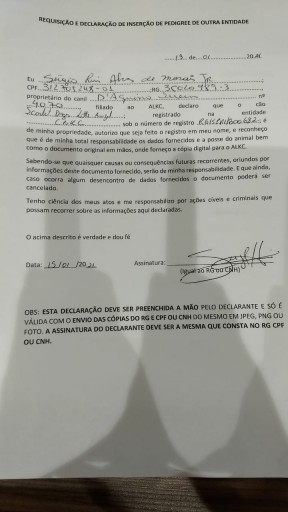 REQUISIÇÃO E DECLARAÇÃO DE INSERÇÃO DE PEDIGREE DE OUTRA ENTIDADE
Eu Sérgio Rui Alves de Morais Jr
CPF RG
proprietário do canil D'Agnine nº
4070 filiado ao ALKC, declaro que o cão
registrado na entidade
CBKC sob o número de registro e
de minha propriedade, autorizo que seja feito o registro em meu nome, e reconheço
que é de minha total responsabilidade os dados fornecidos e a posse do animal bem
como o documento original em mãos, onde forneço a cópia digital para o ALKC.
Sabendo-se que quaisquer causas ou consequências futuras recorrentes, oriundos por
informações deste documento fornecido, serão de minha responsabilidade. E que ainda,
caso ocorra algum desencontro de dados fornecidos o documento poderá ser
cancelado.
Tenho ciência dos meus atos e me responsabilizo por ações cíveis e criminais que
possam recorrer sobre as informações aqui declaradas.
O acima descrito é verdade e dou fé
Data: 15/01/2021 Assinatura:
(Igual ao RG ou CNH)
OBS: ESTA DECLARAÇÃO DEVE SER PREENCHIDA A MÃO PELO DECLARANTE E SÓ É
VÁLIDA COM O ENVIO DAS CÓPIAS DO RG E CPF OU CNH DO MESMO EM JPEG, PNG OU
FOTO. A ASSINATURA DO DECLARANTE DEVE SER A MESMA QUE CONSTA NO RG CPF
OU CNH.